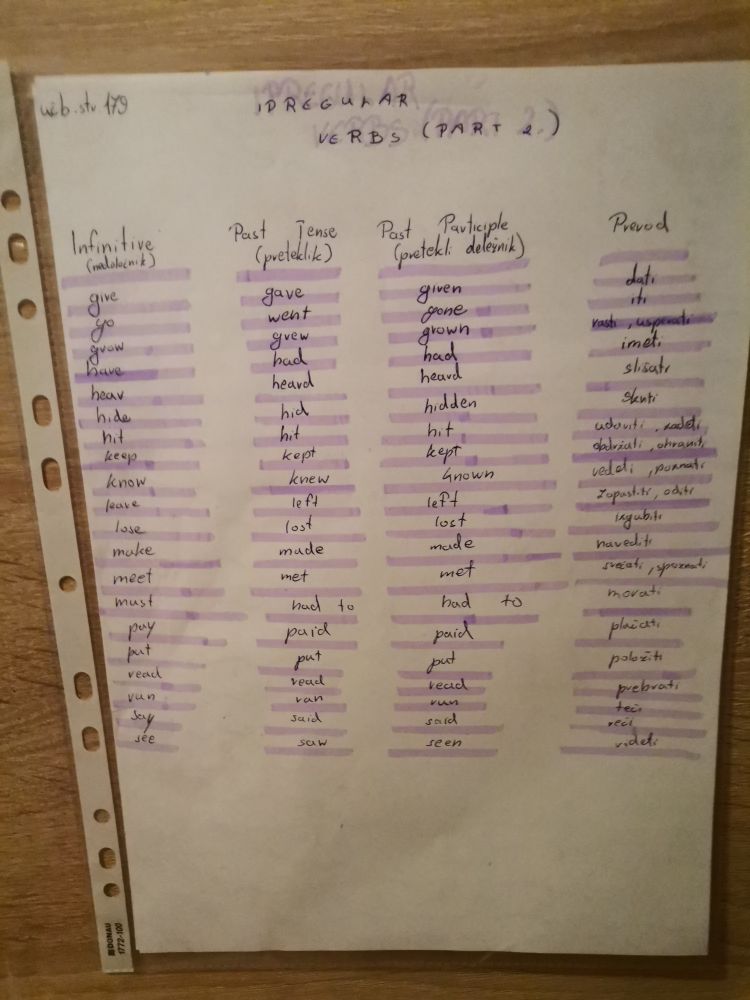 učb. str 179
IRREGULAR
VERBS (PART 2.)
Infinitive Past Tense Past Participle Prevod
(nedoločnik) (preteklik) (pretekli deležnik)
give gave given dati
go went gone iti
grow grew grown rasti, uspevati
have had had imeti
hear heard heard slišati
hide hid hidden skriti
hit hit hit udariti, zadeti
keep kept kept obdržati, ohraniti
know knew known vedeti, poznati
leave left left zapustiti, oditi
lose lost lost izgubiti
make made made narediti
meet met met srečati, spoznati
must had to had to morati
pay paid paid plačati
put put put položiti
read read read prebrati
run ran run teči
say said said reči
see saw seen videti
DONAU
1772-100